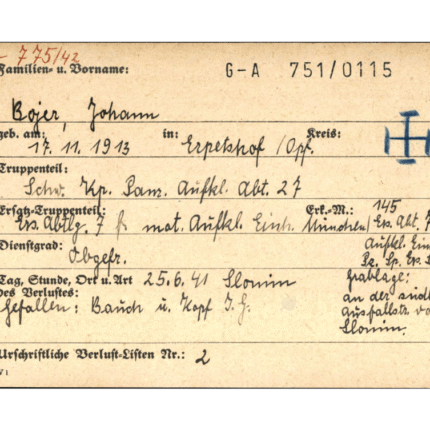 775/42
Familien- u. Vorname: G-A 751/0115
Bojer, Johann
geb. am: in: Kreis:
17. 11. 1913 Erpetshof /Opf.
Truppenteil:
Schw. Kp. Panz. Aufkl. Abt. 27
Ersatz-Truppenteil: Erk.-M.: 145
Ers. Abtlg. 7 mot. Aufkl. Einh. München/ Ers. Abt. 7
Dienstgrad: Aufkl. Ein
Obgefr. Pz. Sp. Ers.
Tag, Stunde, Ort u. Art 25.6.41 Slonim Grablage:
des Verlustes: an der südl
Gefallen: Bauch u. Kopf I.G. Ausfallstr. vo
Slonim.
Urschriftliche Verlust-Listen Nr.: 2